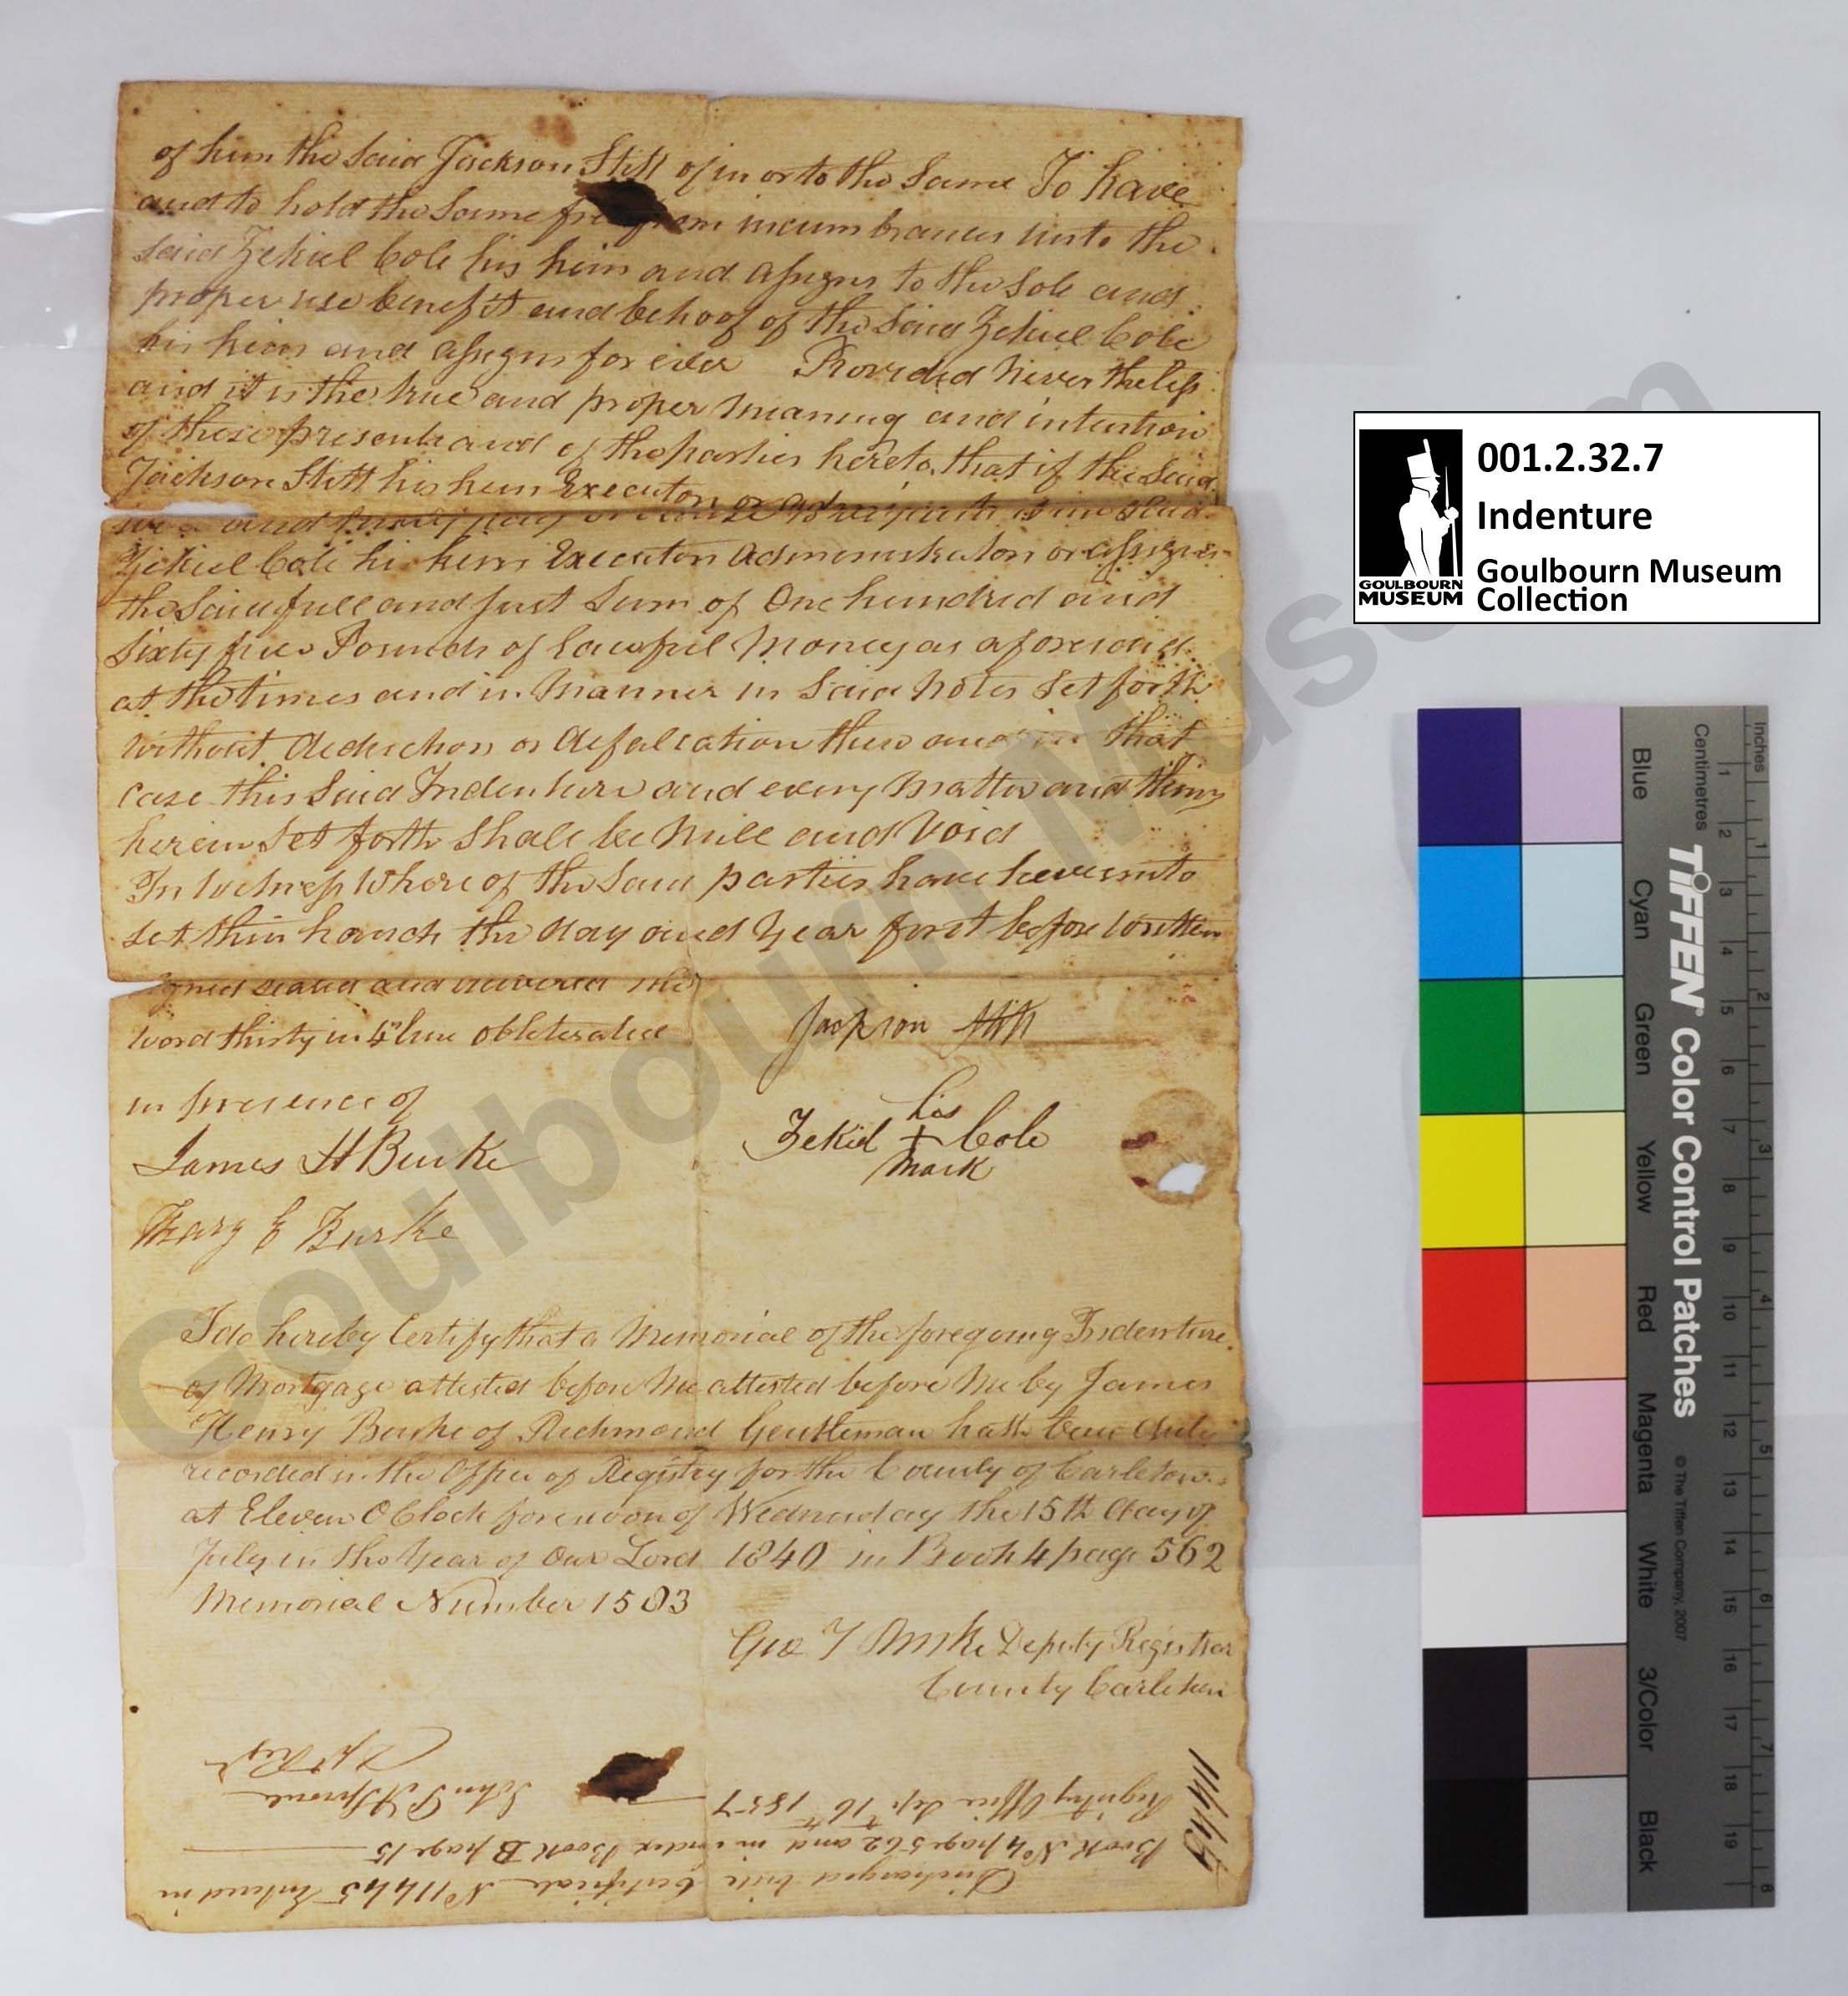 of him the said Jackson Stitt of in or to the Same To have
and to hold the Same free from incumbrances unto the
said Zekiel Cole his heirs and assigns to the sole and
proper use benefit and behoof of the Said Zekiel Cole
his heirs and assigns for ever Provided Never theless
and it is the true and proper meaning and intention
of these presents and of the parties hereto, that if the Said
Jackson Stitt his heirs Executors or
and truly pay or cause to be paid
Zekiel Cole his heirs Executors Administrators or assigns
the Said full and just Sum of One hundred and
Sixty five Pounds of Lawful Money as aforesaid
at the times and in Manner in Said Notes Set forth
without deduction or defalcation then and in that
case this Said Indenture and every matter and thing
herein Set forth Shall be Null and Void
In Witness Where of the Said parties have hereunto
set their hands the day and Year first before written
Signed sealed and delivered the
word thirty in 4th line obliterated
in presence of
James H Burke
Mary E Burke
Jackson Stitt
his
Zekiel + Cole
mark
I do hereby Certify that a Memorial of the foregoing Indenture
of Mortgage attested before Me attested before Me by James
Henry Burke of Richmond Gentleman hath been duly
recorded in the Office of Registry for the County of Carleton
at Eleven OClock forenoon of Wednesday the 15th day of
July in the Year of Our Lord 1840 in Book 4 page 562
Memorial Number 1503
Geo T Burke Deputy Registrar
County Carleton
Discharged Certificate No 11445 Entered in
Book No 4 page 562 and in index Book B page 15
Registry Office Sept 16th 1857
John
Dpt Regr
11445
Goulbourn Museum
001.2.32.7
Indenture
Goulbourn Museum
Collection
GOULBOURN
MUSEUM
TIFFEN Color Control Patches
© The Tiffen Company, 2007
Inches
1 2 3 4 5 6 7 8
Centimetres
1 2 3 4 5 6 7 8 9 10 11 12 13 14 15 16 17 18 19
Blue
Cyan
Green
Yellow
Red
Magenta
White
3/Color
Black